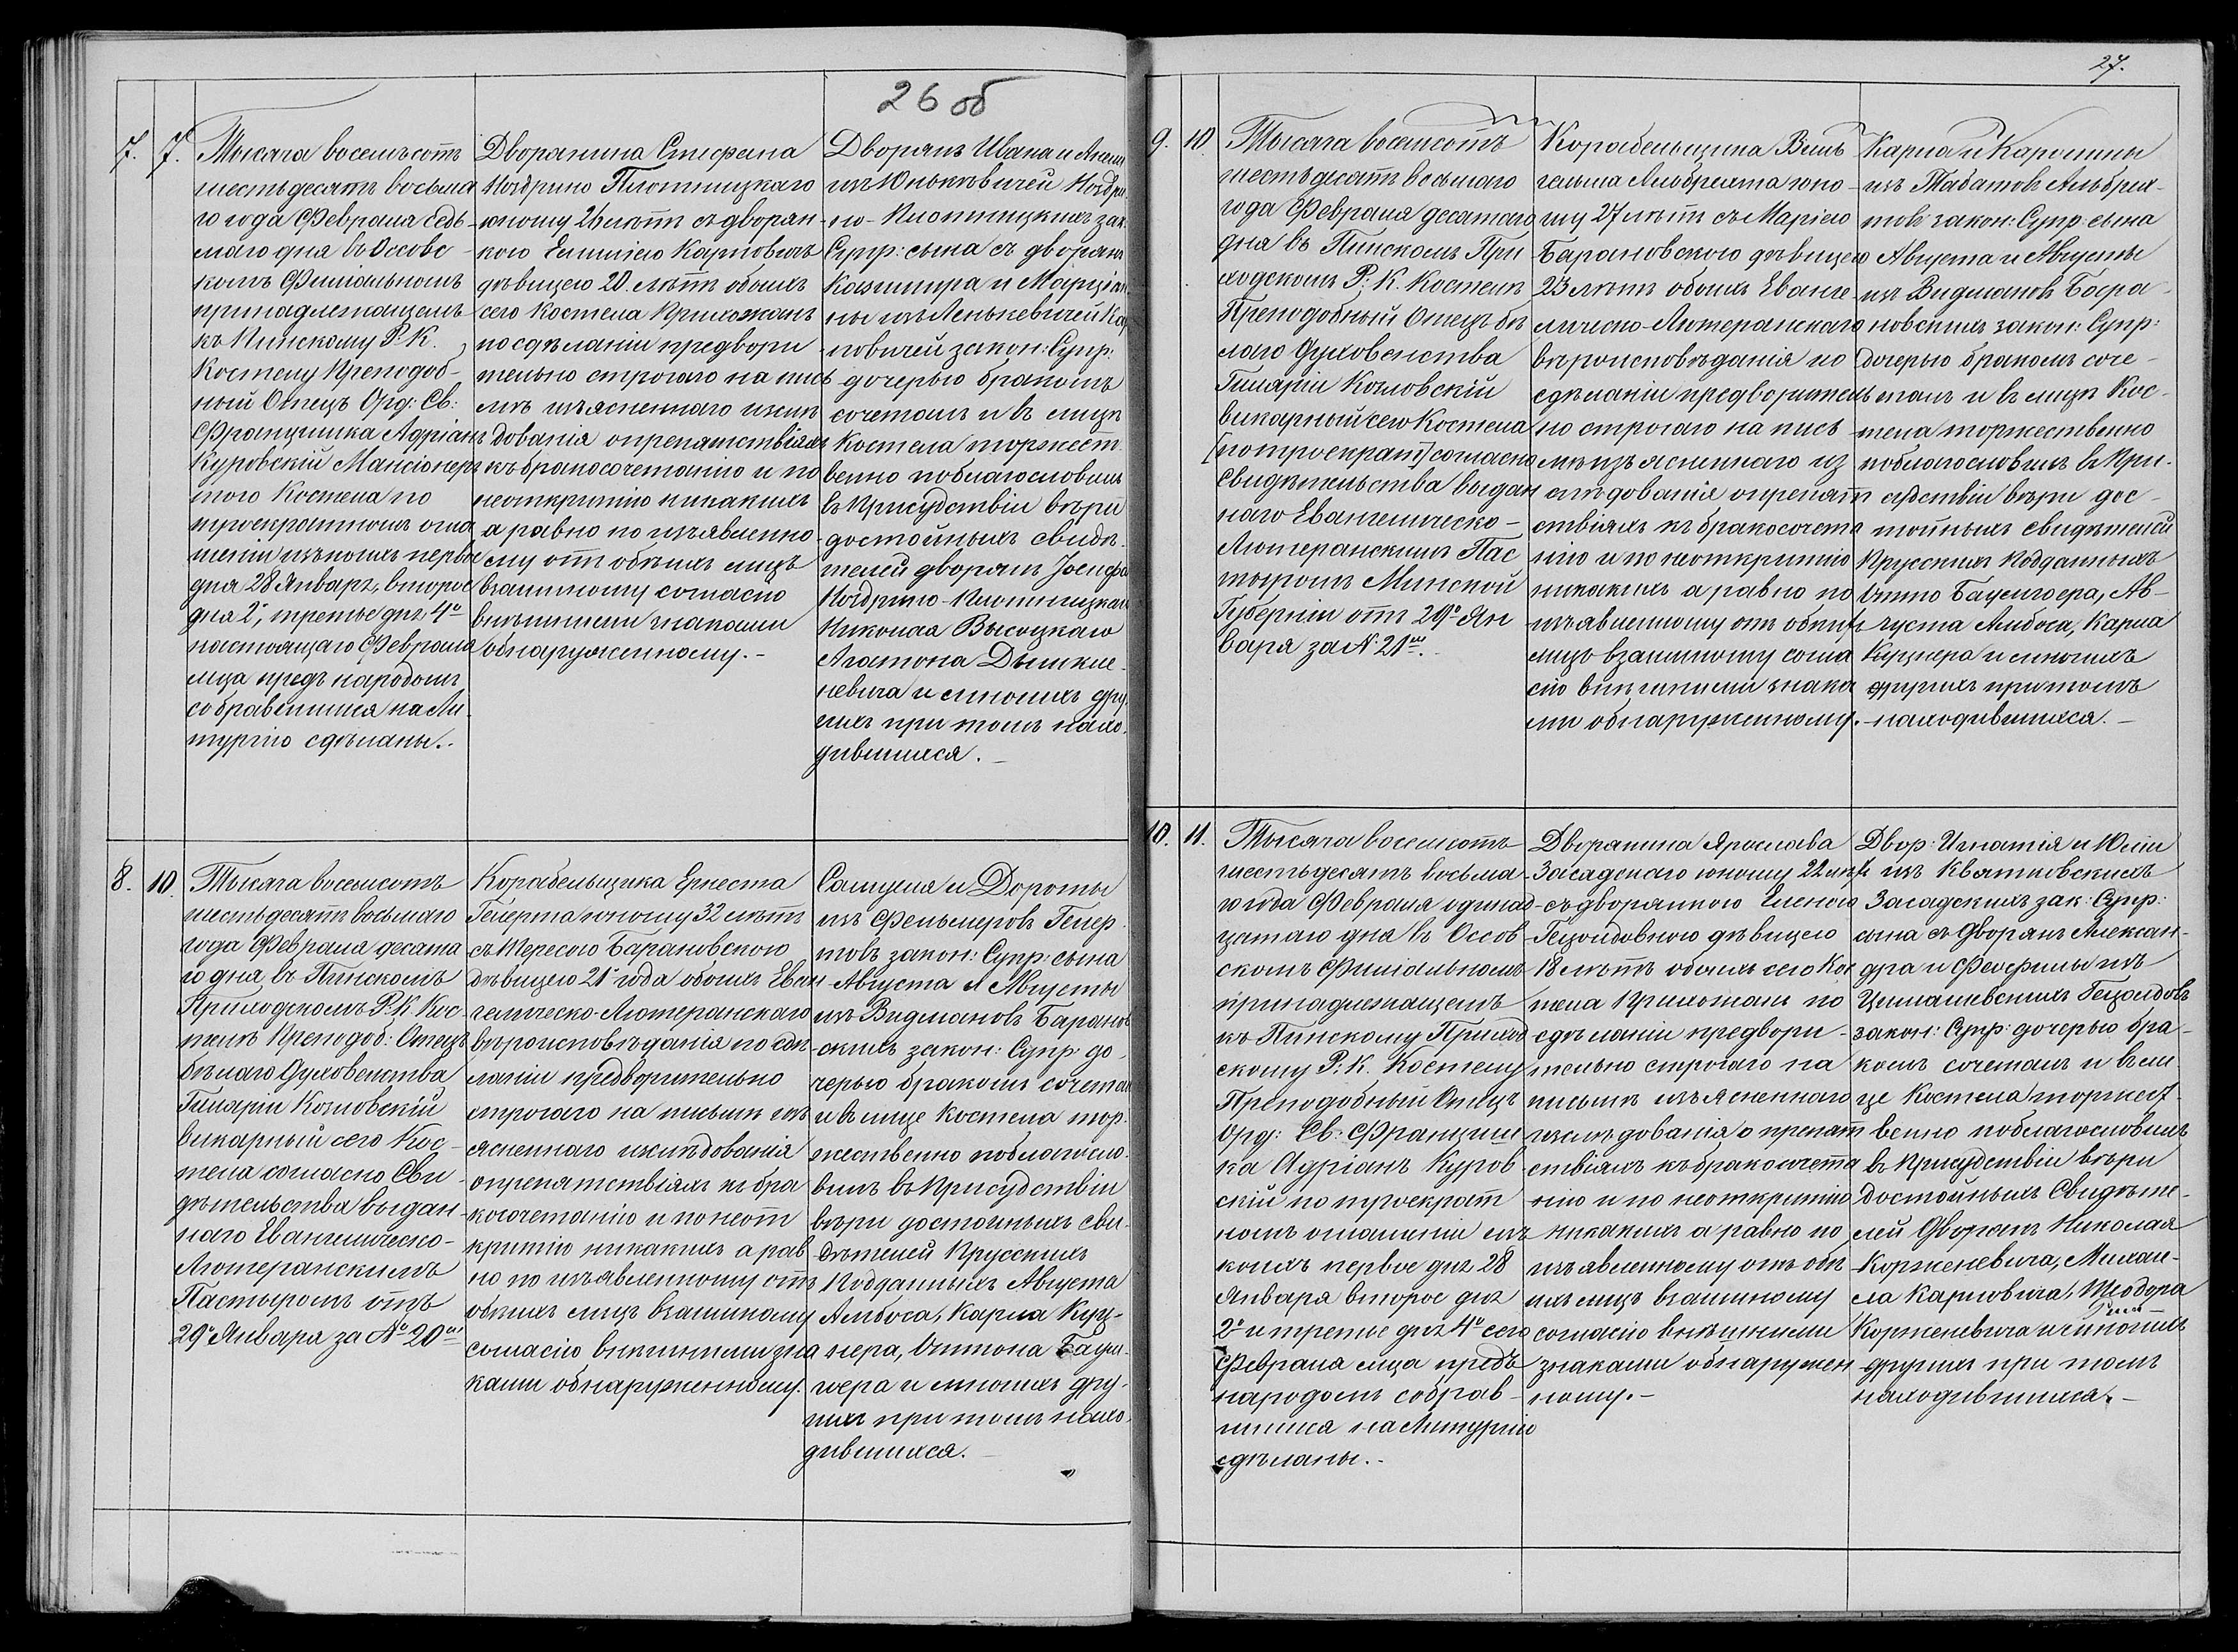 26 об
7.
7.
Тысяча восемьсотъ
шестьдесятъ восьма
го года Февраля седь
маго дня въ Оссовс
комъ Филіальномъ
принадлежащемъ
къ Пинскому Р. К.
Костелу Преподоб-
ный Отецъ Орд: Св:
Франциска Адріанъ
Куровскій Мансіонеръ
того Костела по
троекратномъ огла
шеніи изъ коихъ первое
дня 28 Января, второе
дня 2º, третье дня 4º
настоящаго Февраля
м̃ца предъ народомъ
собравшимся на Ли
тургію сдѣланы.
Дворянина Стефана
Ноздрино Плотницкаго
юношу 26 лѣтъ съ дворян-
кою Емилією Карповичъ
дѣвицею 20. лѣтъ обоихъ
сего Костела Прихожанъ
по сдѣланіи предвори
тельно строгаго на пись
мѣ изъясненнаго изслѣ
дованія о препятствіяхъ
къ бракосочетанію и по
неоткрытію никакихъ
а равно по изъявленно
му отъ обѣихъ лицъ
взаимному согласію
внѣшними знаками
обнаруженному.-
Дворянъ Ивана и
изъ Юньковичей Ноздри
но-Плотницкихъ зак:
Супр: сына съ дворянъ
Казимира и Марціан
ны изъ Ленькевичей Кар
повичей закон: Супр:
дочерью бракомъ
сочеталъ и въ лицѣ
Костела торжест
венно поблагословилъ
въ Присудствіи вѣри
достойныхъ свидѣ
телей дворянъ Іосифа
Ноздрино-Плотницкаго
Николая Высоцкаго
Агатона
невича и многихъ дру
гихъ при томъ нахо
дившихся.
8.
10.
Тысяча восемьсотъ
шестьдесятъ восьмаго
года Февраля десята
го дня, въ Пинскомъ
Приходскомъ Р. К. Кос
телѣ Преподоб: Отецъ
бѣлаго Духовенства
Гиларій Козловскій
викарный сего Кос-
тела согласно Сви
дѣтельства выдан-
наго Евангелическо-
Лютеранскимъ
Пастыромъ отъ
29º Января за № 20мъ
Корабельщика Ернеста
Гелерта юношу 32 лѣтъ
съ Тересою Барановскою
дѣвицею 21 года обоихъ Еван
гелическо-Лютеранскаго
вѣроисповѣданія по сдѣ
ланіи предворительно
строгаго на письмѣ изъ
ясненнаго изслѣдованія
о препятствіяхъ къ бра
косочетанію и по неот
крытію никакихъ а рав
но по изъявленному отъ
обѣихъ лицъ взаимному
согласію внѣшними зна
ками обнаруженному.
Самуеля и Дороты
изъ Фельмеровъ Гелер
товъ закон: Супр: сына
Августа и Августы
изъ Видмановъ Баранов
скихъ закон: Супр: до-
черью бракомъ сочеталъ
и въ лице Костела тор-
жественно поблагосло
вилъ въ Присудствіи
вѣри достойныхъ сви
дѣтелей Прусскихъ
Подданныхъ Августа
Амбоса, Карла Куц-
нера, Оттона Бауи-
гера и многихъ дру-
гихъ при томъ нахо
дившихся.
27.
9.
10.
Тысяча восемсотъ
шестьдесятъ восьмаго
года Февраля десятаго
дня въ Пинскомъ При
ходскомъ Р: К. Костелѣ
Преподобный Отецъ бѣ
лаго Духовенства
Гиларій Козловскій
викарный сего Костела
[по троекрат] согласно
Свидѣтельства выдан
наго Евангелическо-
Лютеранскимъ Пас
тыромъ Минской
Губерніи отъ 29º Ян
варя за № 21мъ.
Корабельщика Виль
гельма Альбрехта юно-
шу 27 лѣтъ съ Марією
Барановскою дѣвицею
23 лѣтъ обоихъ Еванге
лическо-Лютеранскаго
вѣроисповѣданія по
сдѣланіи предворитель
но строгаго на пись
мѣ изъясненнаго из
слѣдованія о препят
ствіяхъ къ бракосочета
нію и по неоткрытію
никакихъ а равно по
изъявленному отъ обѣихъ
лицъ взаимному согла
сію внѣшними знака
ми обнаруженному.
Карла и Каролины
изъ Табатовъ Альбрех-
товъ закон: Супр: сына
Августа и Августы
изъ Видмановъ Бара-
новскихъ закон: Супр:
дочерью бракомъ соче-
талъ и въ лицѣ Кос-
тела торжественно
поблагословилъ въ При-
судствіи вѣри дос-
тойныхъ свидѣтелей
Прусскихъ Подданныхъ
Отто Бауигера, Ав-
густа Амбоса, Карла
Куцнера и многихъ
другихъ при томъ
находившихся.-
10.
11.
Тысяча восемсотъ
шестьдесятъ восьма
го года Февраля одинад
цатаго дня въ Оссов
скомъ Филіальномъ
принадлежащемъ
къ Пинскому Приход
скому Р: К. Костелу
Преподобный Отецъ
Орд: Св: Францыш
ка Адріанъ Куров
скій по троекрат
номъ оглашеніи изъ
коихъ первое дня 28
Января второе дня
2º и третье дня 4º сего
Февраля м̃ца предъ
народомъ собрав
шимся на Литургію
сдѣланы.
Дворянина Ярослава
Засадскаго юношу 22 лѣтъ
съ дворянкою Еленою
Гецолдовною дѣвицею
18 лѣтъ обоихъ сего Кос
тела Прихожанъ по
сдѣланіи предвори-
тельно строгаго на
письмѣ изъясненнаго
изслѣдованія о препят
ствіяхъ къ бракосочета
нію и по неоткрытію
никакихъ а равно по
изъявленному отъ обѣ
ихъ лицъ взаимному
согласію внѣшними
знаками обнаружен
ному.-
Двор: Игнатія и Юліи
изъ Квятковскихъ
Засадскихъ зак: Супр:
сына съ Дворянъ Алексан-
дра и Феофилы изъ
Гецолдовъ
закон: Супр: дочерью бра-
комъ сочеталъ и въ ли
це Костела торжест-
венно поблагословилъ
въ Присудствіи вѣри
достойныхъ Свидѣте-
лей Дворянъ Николая
Корженевича, Михаи-
ла Карповича, Теодора
Корженевича и многихъ
другихъ при томъ
находившихся.-